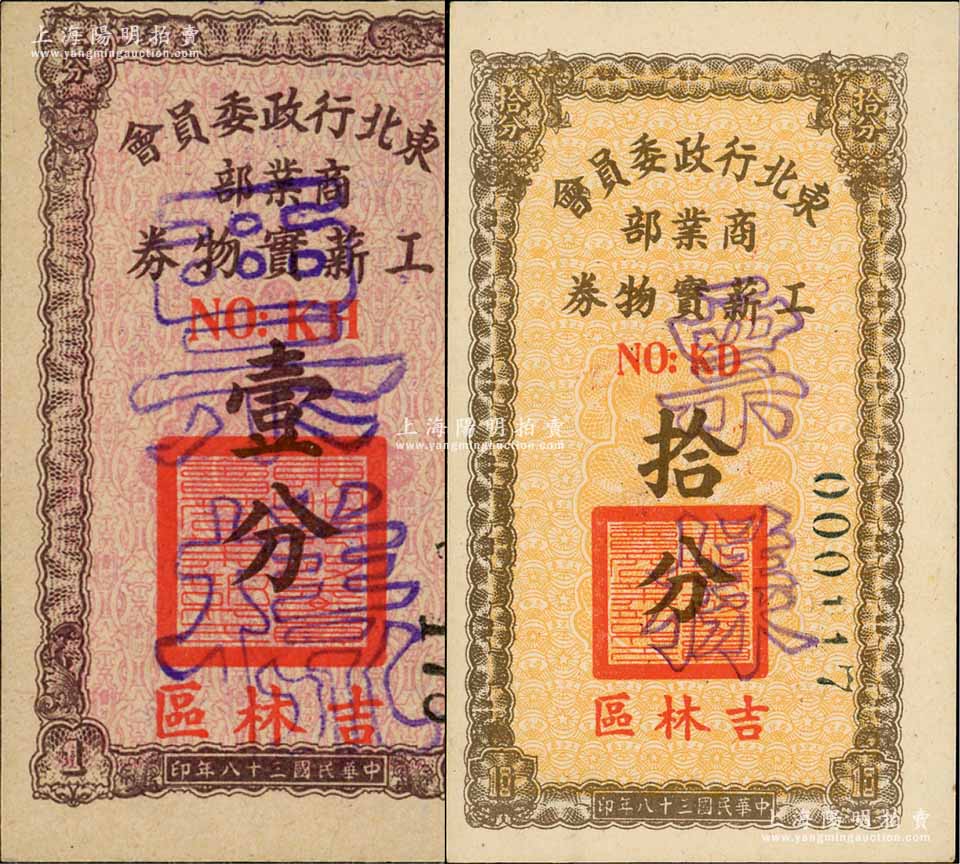 上海陽明拍賣
www.yangmingauction.com
分
東北行政委員會
商業部
工薪實物券
NO: KH
壹
分
票樣
吉林區
1
中華民國三十八年印
拾分
拾分
東北行政委員會
商業部
工薪實物券
NO: KD
拾
分
票樣
000117
吉林區
10
10
中華民國三十八年印
上海陽明拍賣
www.yangmingauction.com
上海陽明拍賣
www.yangmingauction.com